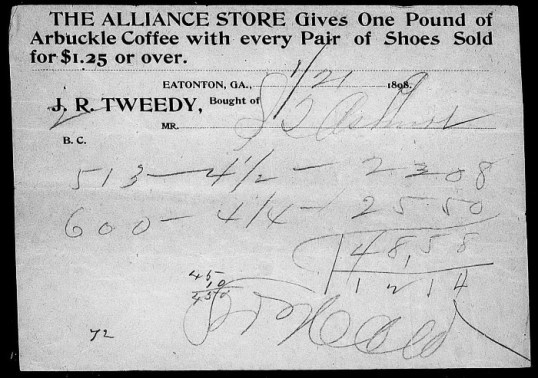 THE ALLIANCE STORE Gives One Pound of
Arbuckle Coffee with every Pair of Shoes Sold
for $1.25 or over.
EATONTON, GA., 1/21 1898
J. R. TWEEDY, Bought of
MR.
B. C.
513 — 4 1/2 — 2308
600 — 4 1/4 — 25.50
48,58
1214
45
10
450
72